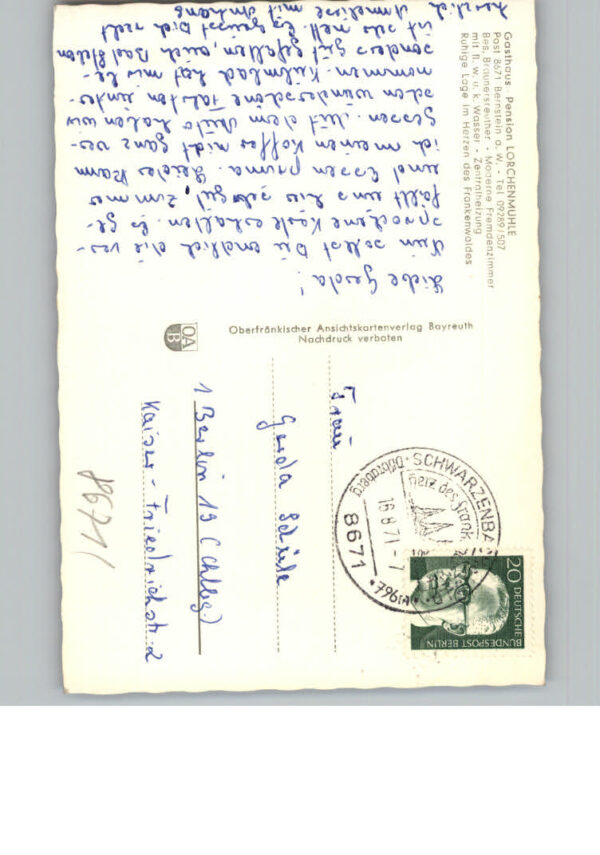 Gasthaus - Pension LORCHENMÜHLE
Post 8671 Bernstein a. W. - Tel. 09289/507
Bes. Braunersreuther - Moderne Fremdenzimmer
mit fl. w. u. k. Wasser - Zentralheizung
Ruhige Lage im Herzen des Frankenwaldes
Liebe Gerda!
Nun sollst Du endlich die ver-
sprochene Karte erhalten. Es ge-
fällt uns hier sehr gut, Zimmer
und Essen prima. Leider kann
ich meinen Koffer nicht ganz ver-
gessen. Mit dem Auto haben wir
schon wunderschöne Fahrten unter-
nommen. Kulmbach hat mir be-
sonders gut gefallen, auch Bad Steben
ist sehr nett. Es grüsst Dich recht
herzlich Anneliese mit Anhang
OA
B
Oberfränkischer Ansichtskartenverlag Bayreuth
Nachdruck verboten
Frau
Gerda Schüle
1 Berlin 19 (Chlbg.)
Kaiser-Friedrichstr. 2
8671
SCHWARZENBA
Döbraberg
Herz des Frank
16.8.71-7
8671
20
DEUTSCHE
BUNDESPOST BERLIN